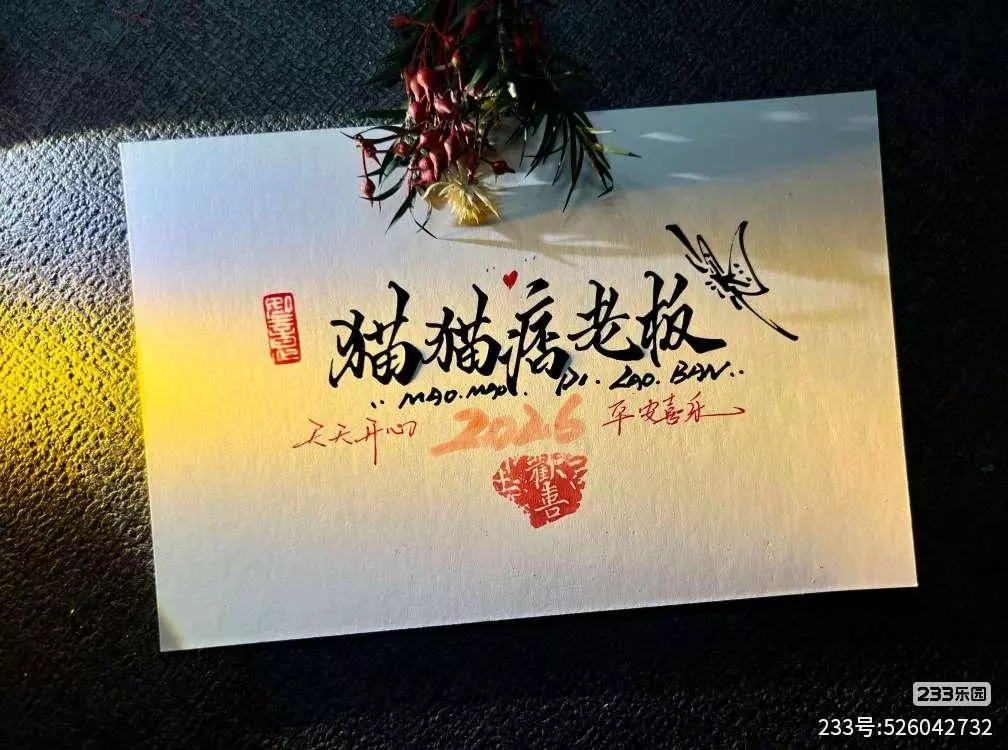 猫猫痞老板
MAO.MAO. PI. LAO.BAN..
天天开心 2026 平安喜乐
歡喜
233乐园
233号:526042732